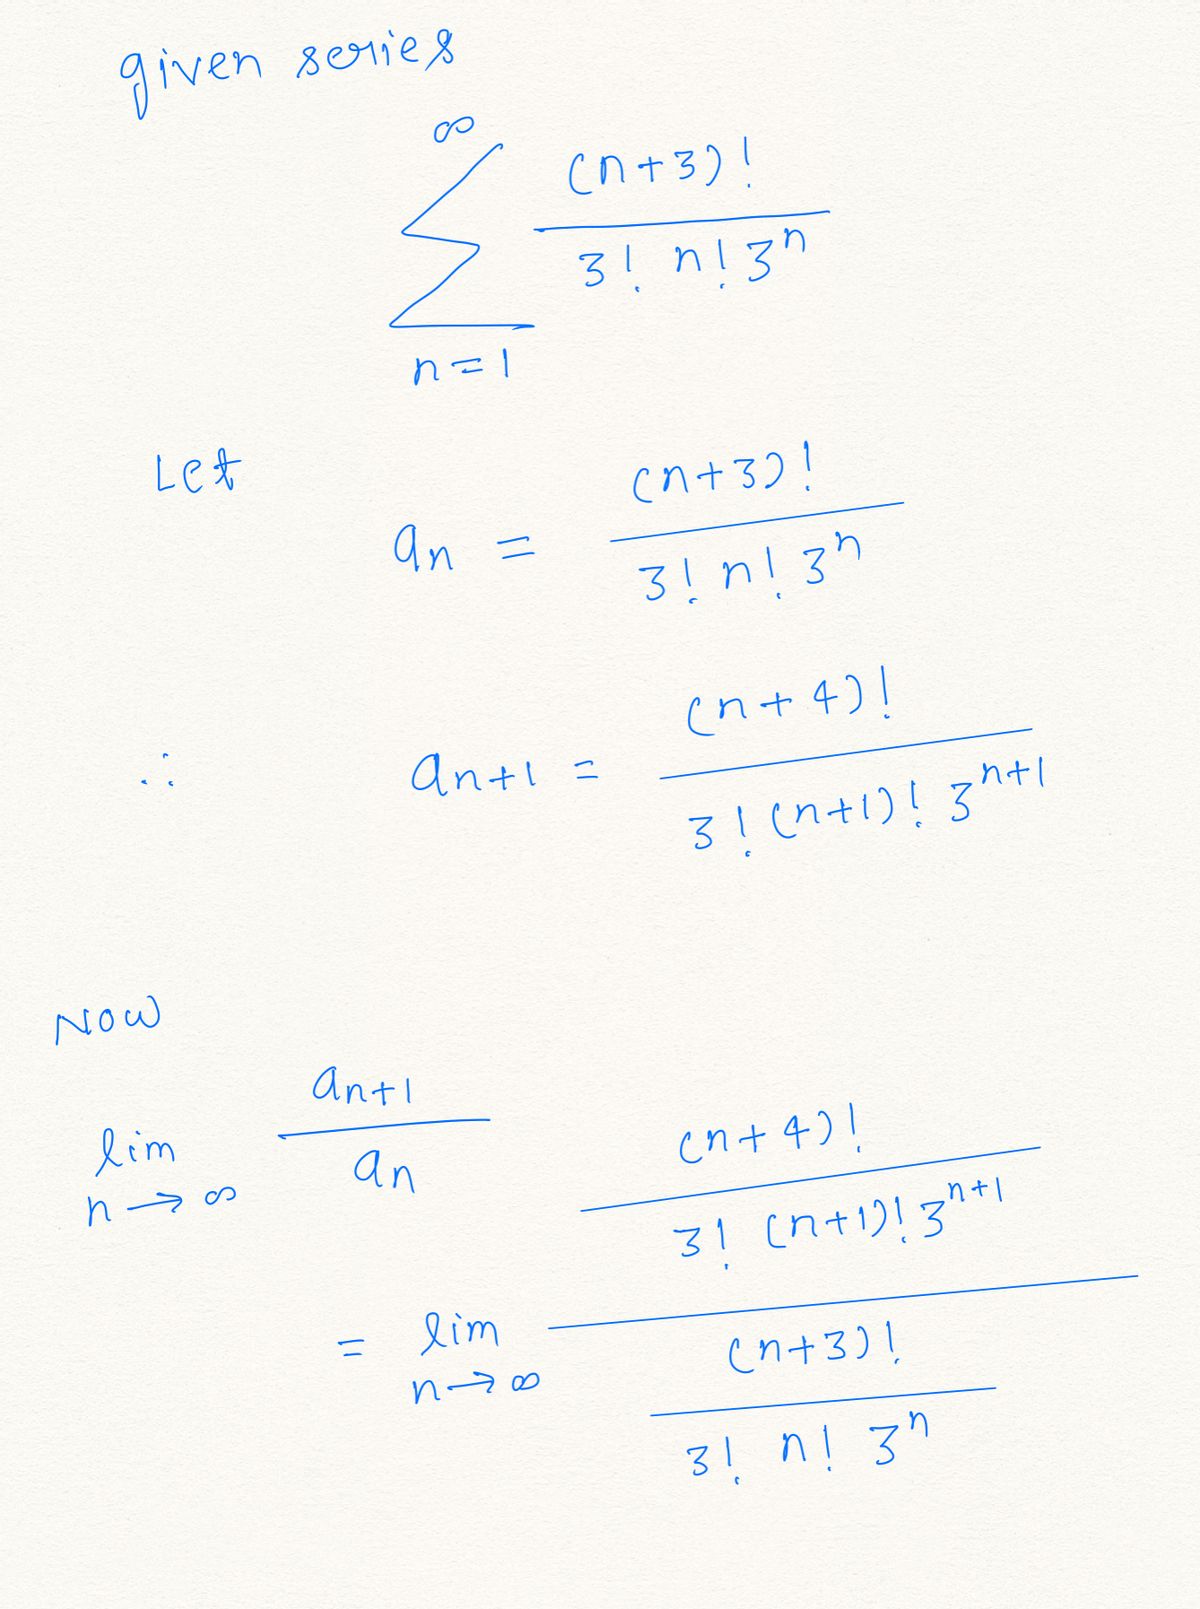 given series
∞
∑ (n+3)! / 3! n! 3^n
n=1
Let
a_n = (n+3)! / 3! n! 3^n
∴ a_{n+1} = (n+4)! / 3! (n+1)! 3^{n+1}
Now
lim n→∞ a_{n+1} / a_n
= lim n→∞ ((n+4)! / 3! (n+1)! 3^{n+1}) / ((n+3)! / 3! n! 3^n)